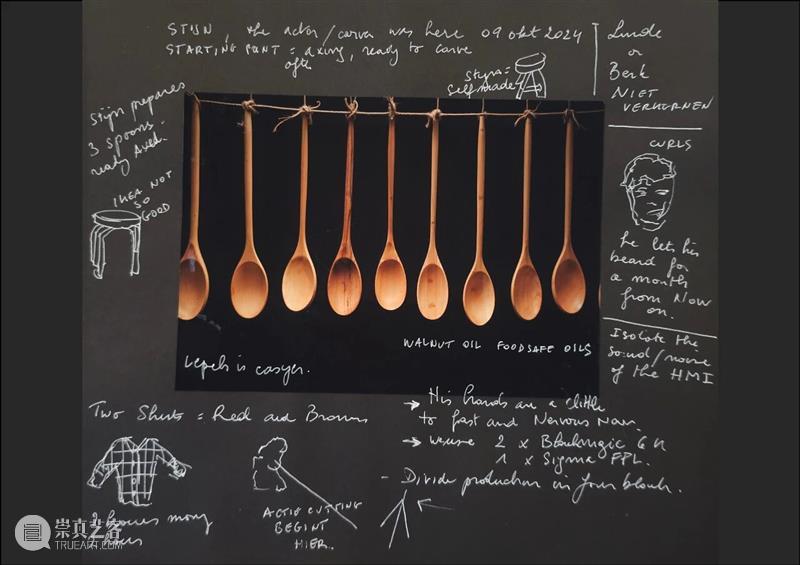 STIJN, the actor/carver was here 09 okt 2024
STARTING POINT = axing, ready to carve
often
Stijn =
Selfmade
Linde
or
Berk
NIET
Stijn prepares
3 spoons
ready Axed.
IKEA NOT
SO
GOOD
CURLS
he lets his
beard for
a month
from Now
on.
Isolate the
sound/noise
of the HMI
WALNUT OIL FOODSAFE OILS
Lepels is easyer.
Two Shirts = Red and Brown
→ His hands are a little
to fast and Nervous Now.
→ we use 2 x Blackmagic 6K
1 x Sigma FPL.
- Divide production in four blocks.
ACTIE CUTTING
BEGINT
HIER.
崇真艺客
TRUEART.COM